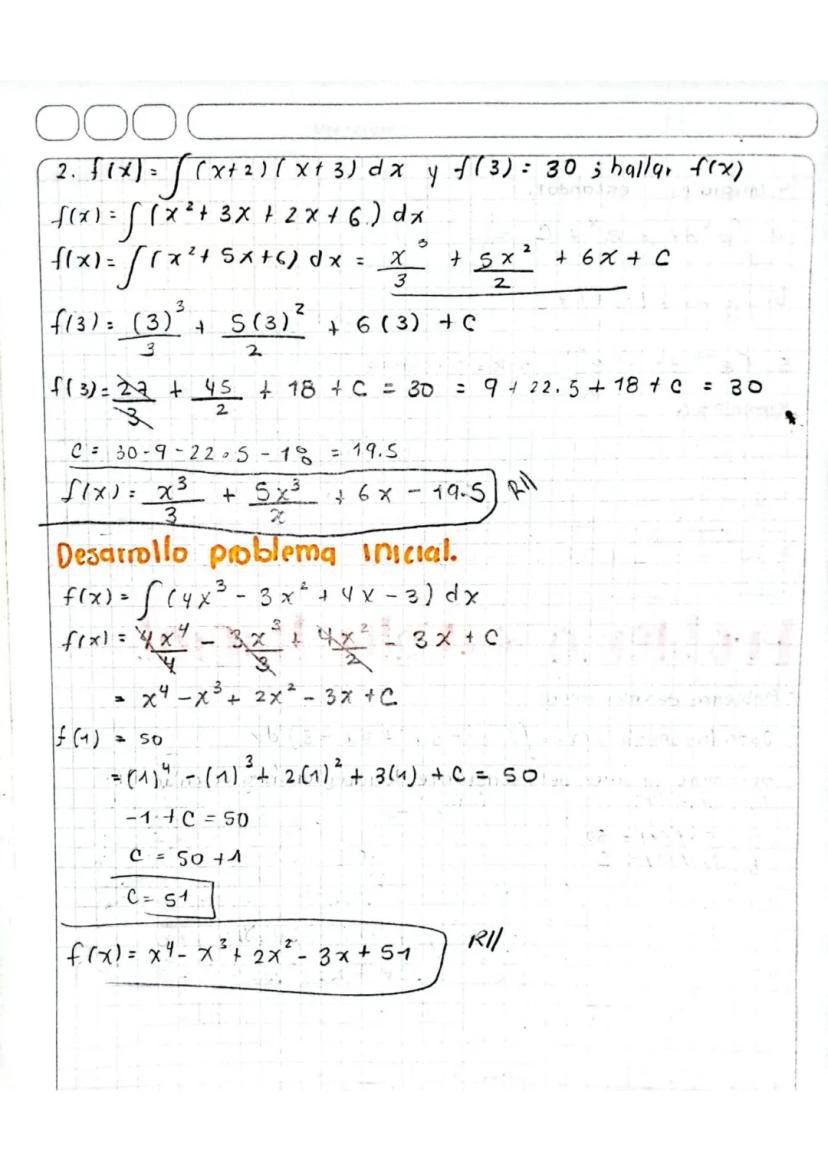 2. f(x) = ∫(x+2)(x+3) dx y f(3) = 30 ; hallar f(x)
f(x) = ∫(x² + 3x + 2x + 6) dx
f(x) = ∫(x² + 5x + 6) dx = x³/3 + 5x²/2 + 6x + C
f(3) = (3)³/3 + 5(3)²/2 + 6(3) + C
f(3) = 27/3 + 45/2 + 18 + C = 30 = 9 + 22.5 + 18 + C = 30
C = 30 - 9 - 22.5 - 18 = 19.5
f(x) = x³/3 + 5x³/2 + 6x - 19.5 R//
Desarrollo problema inicial.
f(x) = ∫(4x³ - 3x² + 4x - 3) dx
f(x) = 4x⁴/4 - 3x³/3 + 4x²/2 - 3x + C
= x⁴ - x³ + 2x² - 3x + C
f(1) = 50
= (1)⁴ - (1)³ + 2(1)² + 3(1) + C = 50
-1 + C = 50
C = 50 + 1
C = 51
f(x) = x⁴ - x³ + 2x² - 3x + 51 R//